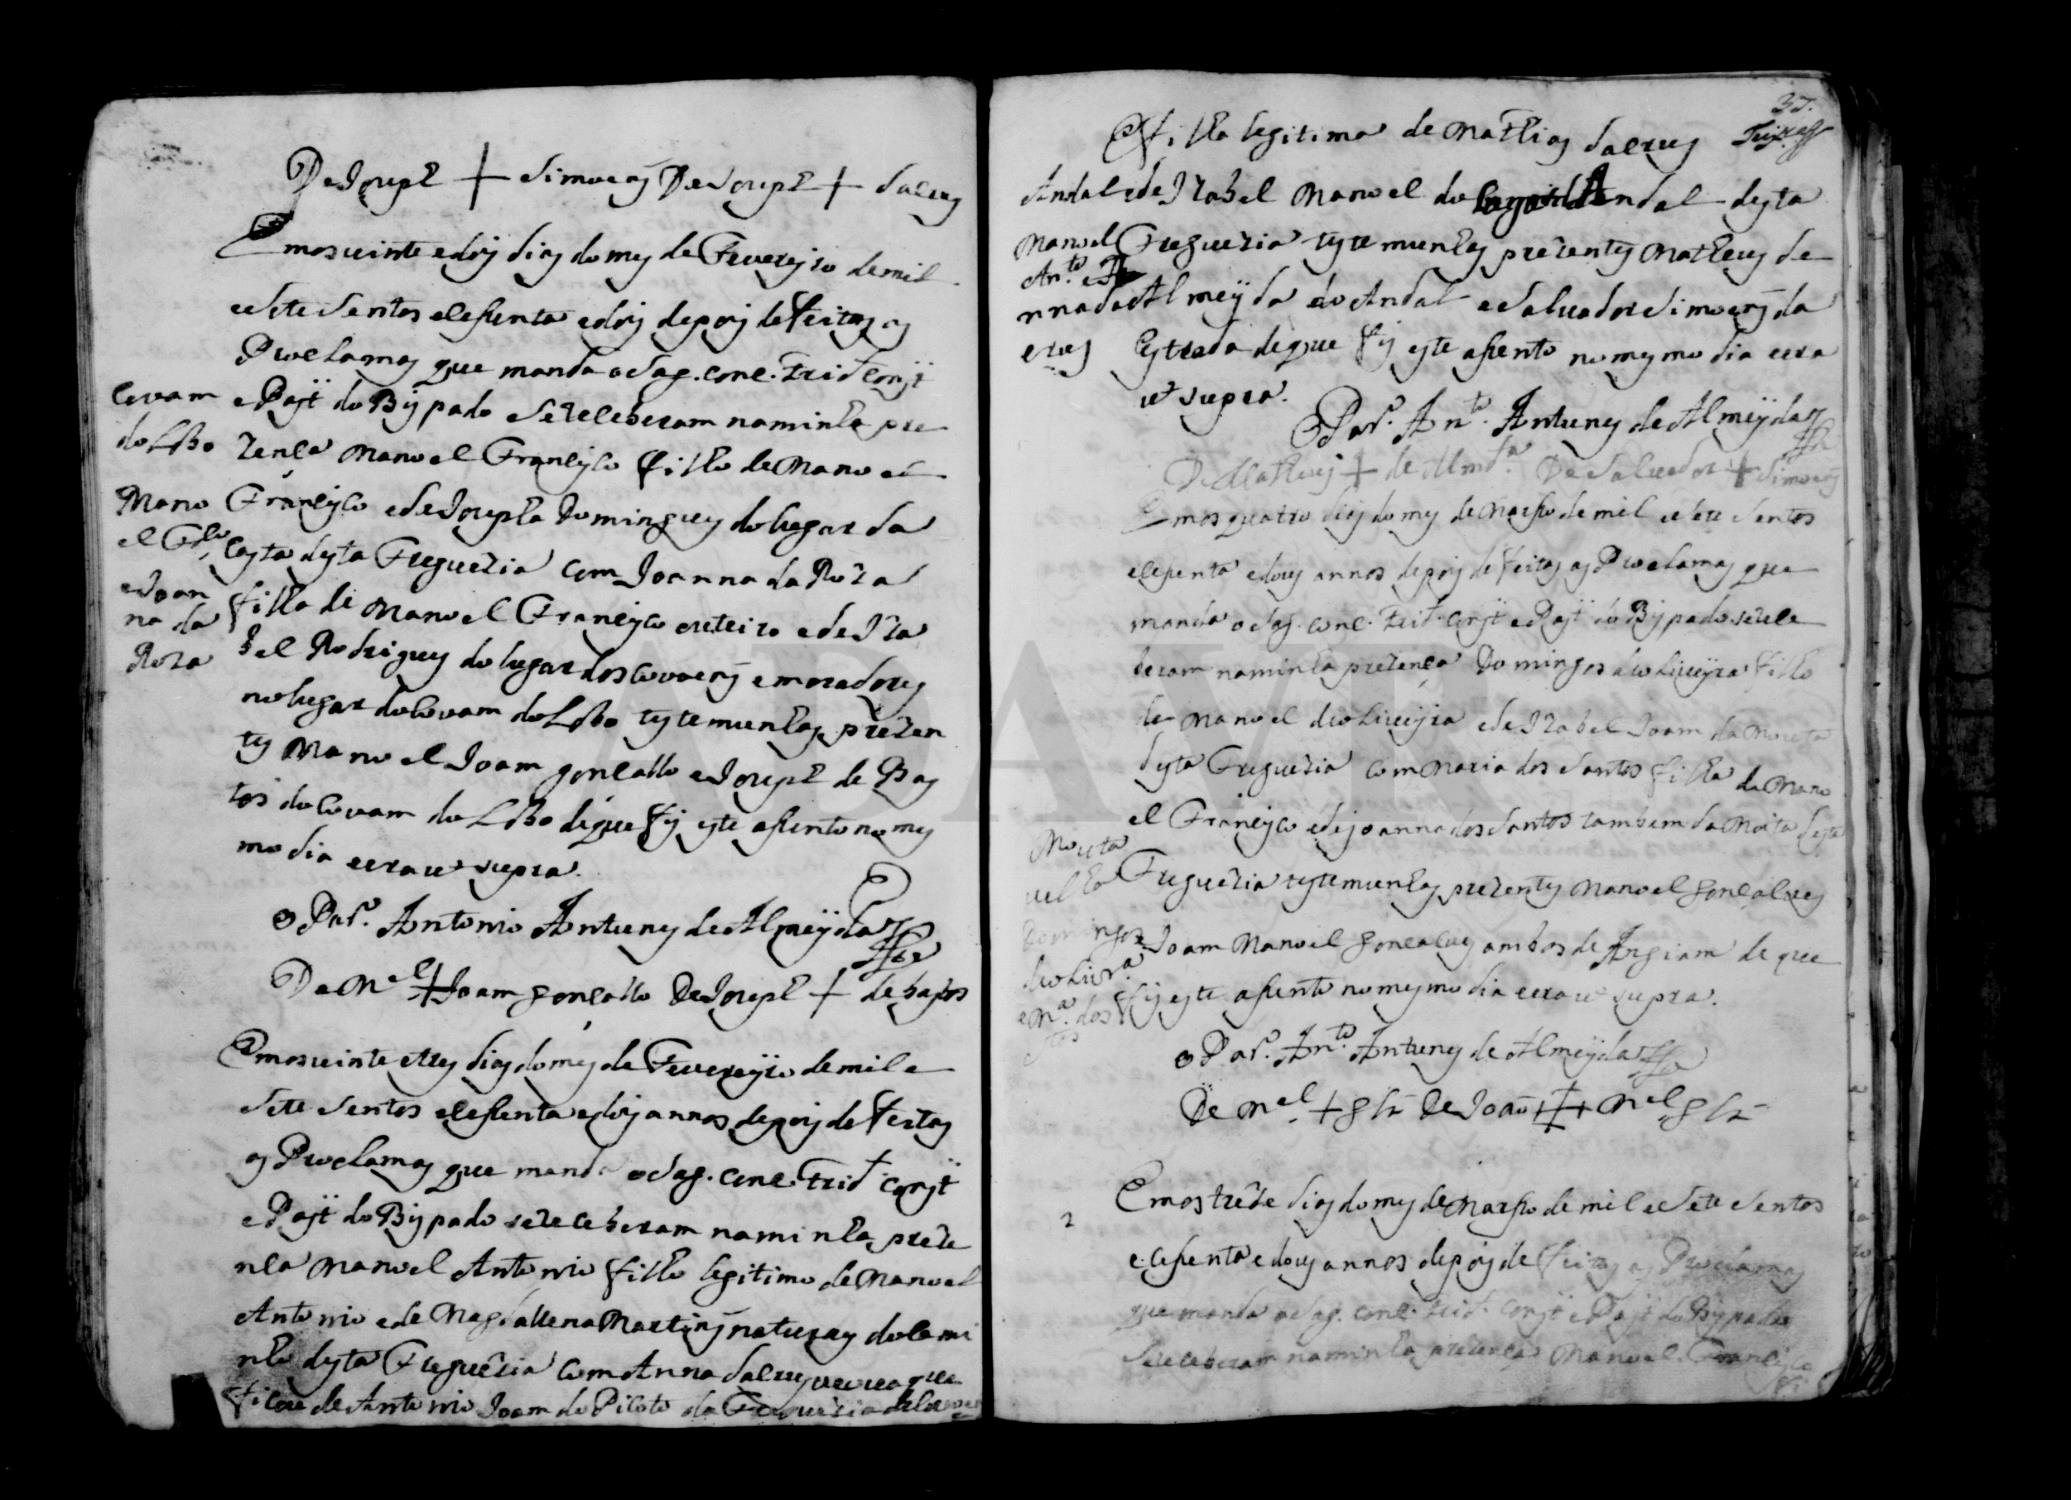 De Joseph + Simoens De Joseph + da crus
Em os vinte e dois dias do mes de Fevereyro de mil
e sete sentos e sesenta e dois depois de feitas as
Proclamas que manda o Sag. Conc. Trid. Const
e Const. do Bispado se receberam na minha pre
zença Manoel Francisco filho de Manoel
Francisco e de Josepha Domingues do lugar da
Costa desta Freguezia com Joanna da Roza
filha de Manoel Francisco outeiro e de Iza
bel Rodrigues do lugar dos Covoens e moradores
no lugar do Covam do Lobo testemunhas prezen
tes Manoel Joam gonçallo e Joseph de Bas
tos do Covam do Lobo de que fis este asento no mes
mo dia era ut supra.
Covam
do Lobo
Mano
el Fco
e Joan
na da
Roza
o Par.o Antonio Antunes de Almeyda
De Mel + Joam gonçallo De Joseph + de bastos
Em os vinte e tres dias do mes de Fevereyro de mil e
sete sentos e sesenta e dois annos depois de feitas
as Proclamas que manda o Sag. Conc. Trid. Const
e Const do Bispado se receberam na minha preze
nça Manoel Antonio filho legitimo de Manoel
Antonio e de Magdallena Martins naturais do Cami
nho desta Freguezia com Anna da Crus veuva que
ficou de Antonio Joam do Piloto da Freguezia
37.
filha legitima de Mathias da crus
Andal e de Izabel Manoel do Andal desta
Freguezia testemunhas prezentes Matheus de
Almeyda do Andal e Salvador Simoens da
Estrada de que fis este asento no mesmo dia era
ut supra.
Manoel
An.to e A
nna da
crus
o Par.o An.to Antunes de Almeyda
De Matheus + de Almda. De Salvador + Simoens
Em os quatro dias do mes de Marso de mil e sete sentos
e sesenta e dous annos depois de feitas as Proclamas que
manda o Sag. Conc. Trid. Const e Const do Bispado se rece
beram na minha prezença Domingos de oliveyra filho
de Manoel de oliveyra e de Izabel Joam da Mouta
desta Freguezia com Maria dos Santos filha de Mano
el Francisco e de joanna dos Santos tambem da Moita desta
Freguezia testemunhas prezentes Manoel gonçalves
e Joam Manoel gonçalves ambos de Angiam de que
fis este asento no mesmo dia era ut supra.
Mouta
velha
Domingos
de olivra.
e Ma. dos
Stos
o Par.o An.to Antunes de Almeyda
De Mel + glz De Joam + Mel glz
2
Em os treze dias do mes de Marso de mil e sete sentos
e sesenta e dous annos depois de feitas as Proclamas
que manda o Sag. Conc. Trid. Const e Const do Bispado
se receberam na minha prezença Manoel Francisco
fi
ADAVR